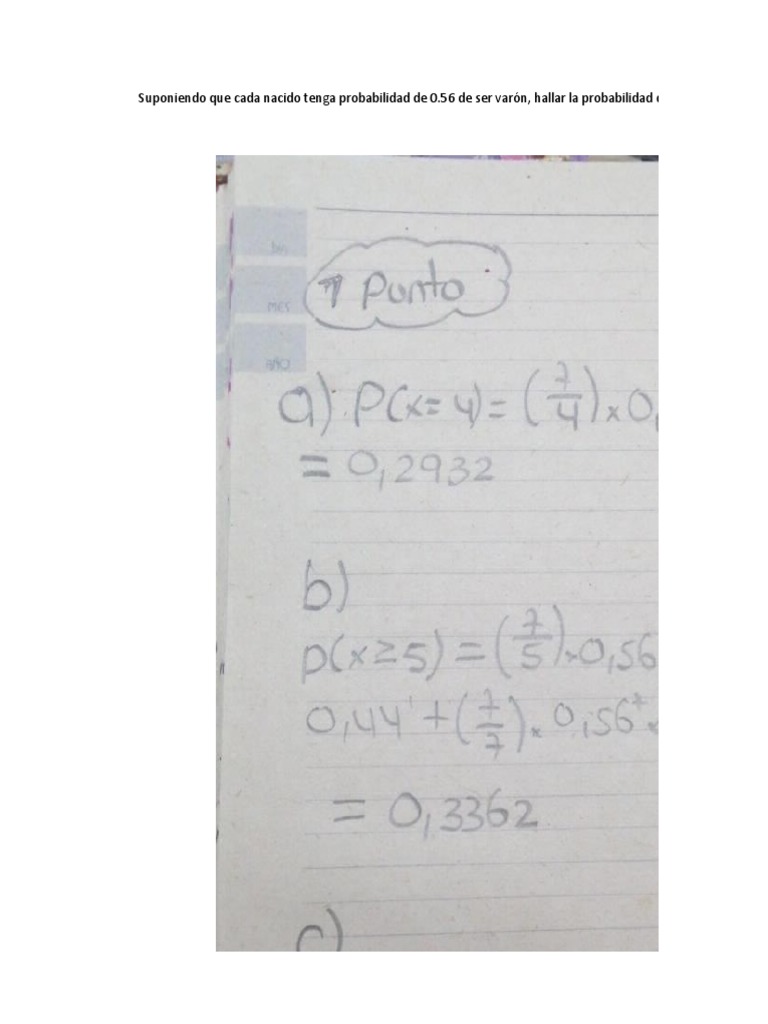 Suponiendo que cada nacido tenga probabilidad de 0.56 de ser varón, hallar la probabilidad
MES
AÑO
1 Punto
a) P(x=4) = (7/4) × 0,
= 0,2932
b)
p(x≥5) = (7/5) × 0,56
0,44¹ + (7/7) × 0,56⁷ ×
= 0,3362
c)